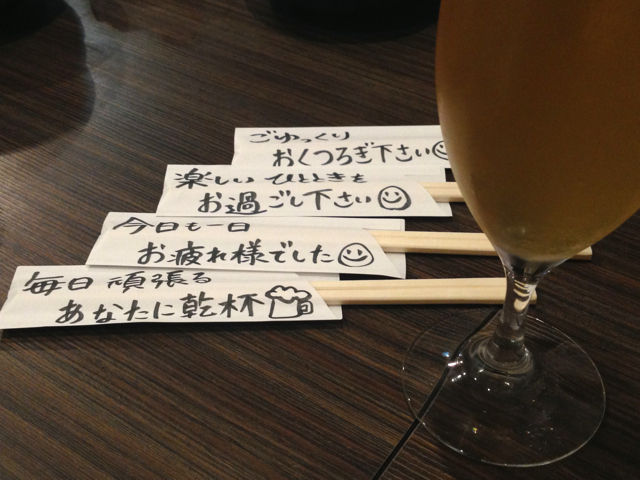 ごゆっくり
おくつろぎ下さい
楽しいひとときを
お過ごし下さい
今日も一日
お疲れ様でした
毎日頑張る
あなたに乾杯